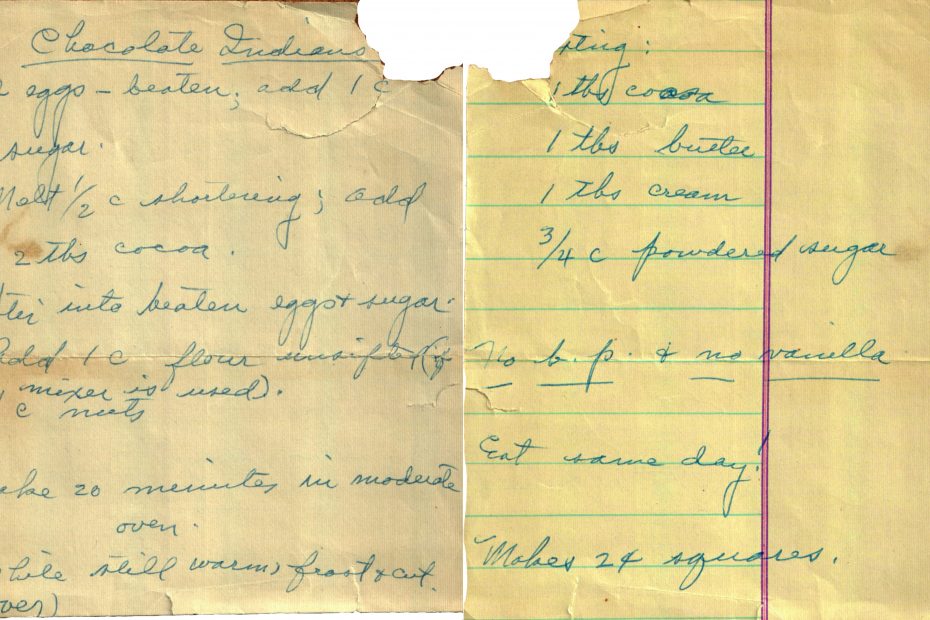 Chocolate Indians
2 eggs – beaten; add 1 c
sugar.
Melt 1/2 c shortening; add
2 tbs cocoa.
Stir into beaten eggs + sugar.
Add 1 c flour unsifted (if
mixer is used).
c nuts
ake 20 minutes in moderate
oven.
hile still warm, frost & cut.
over)
sting:
1 tbs cocoa
1 tbs butter
1 tbs cream
3/4 c powdered sugar
No b. p. & no vanilla
Eat same day!
Makes 24 squares.